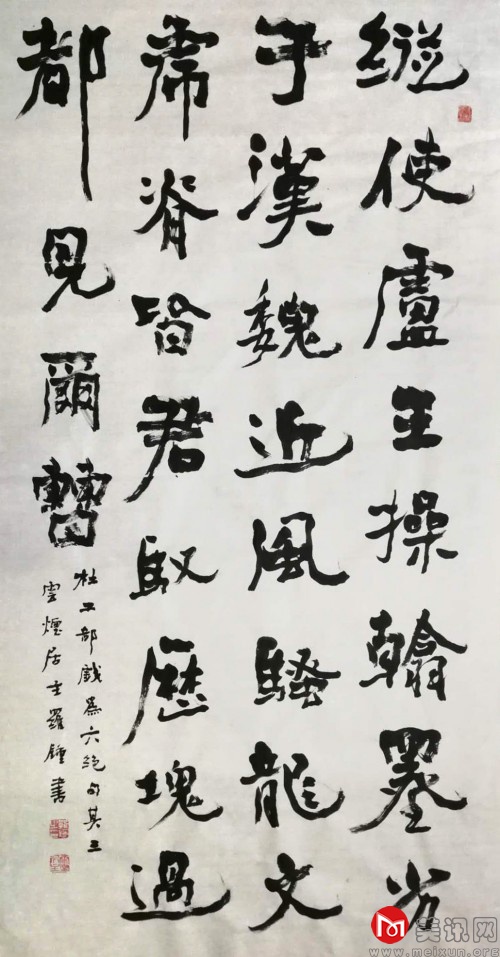 縱使盧王操翰墨劣
于漢魏近風騷龍文
虎脊皆君馭歷塊過
都見爾曹
杜工部戲爲六絕句其三
雲煙居士羅鍾書
美讯网
www.meixun.org